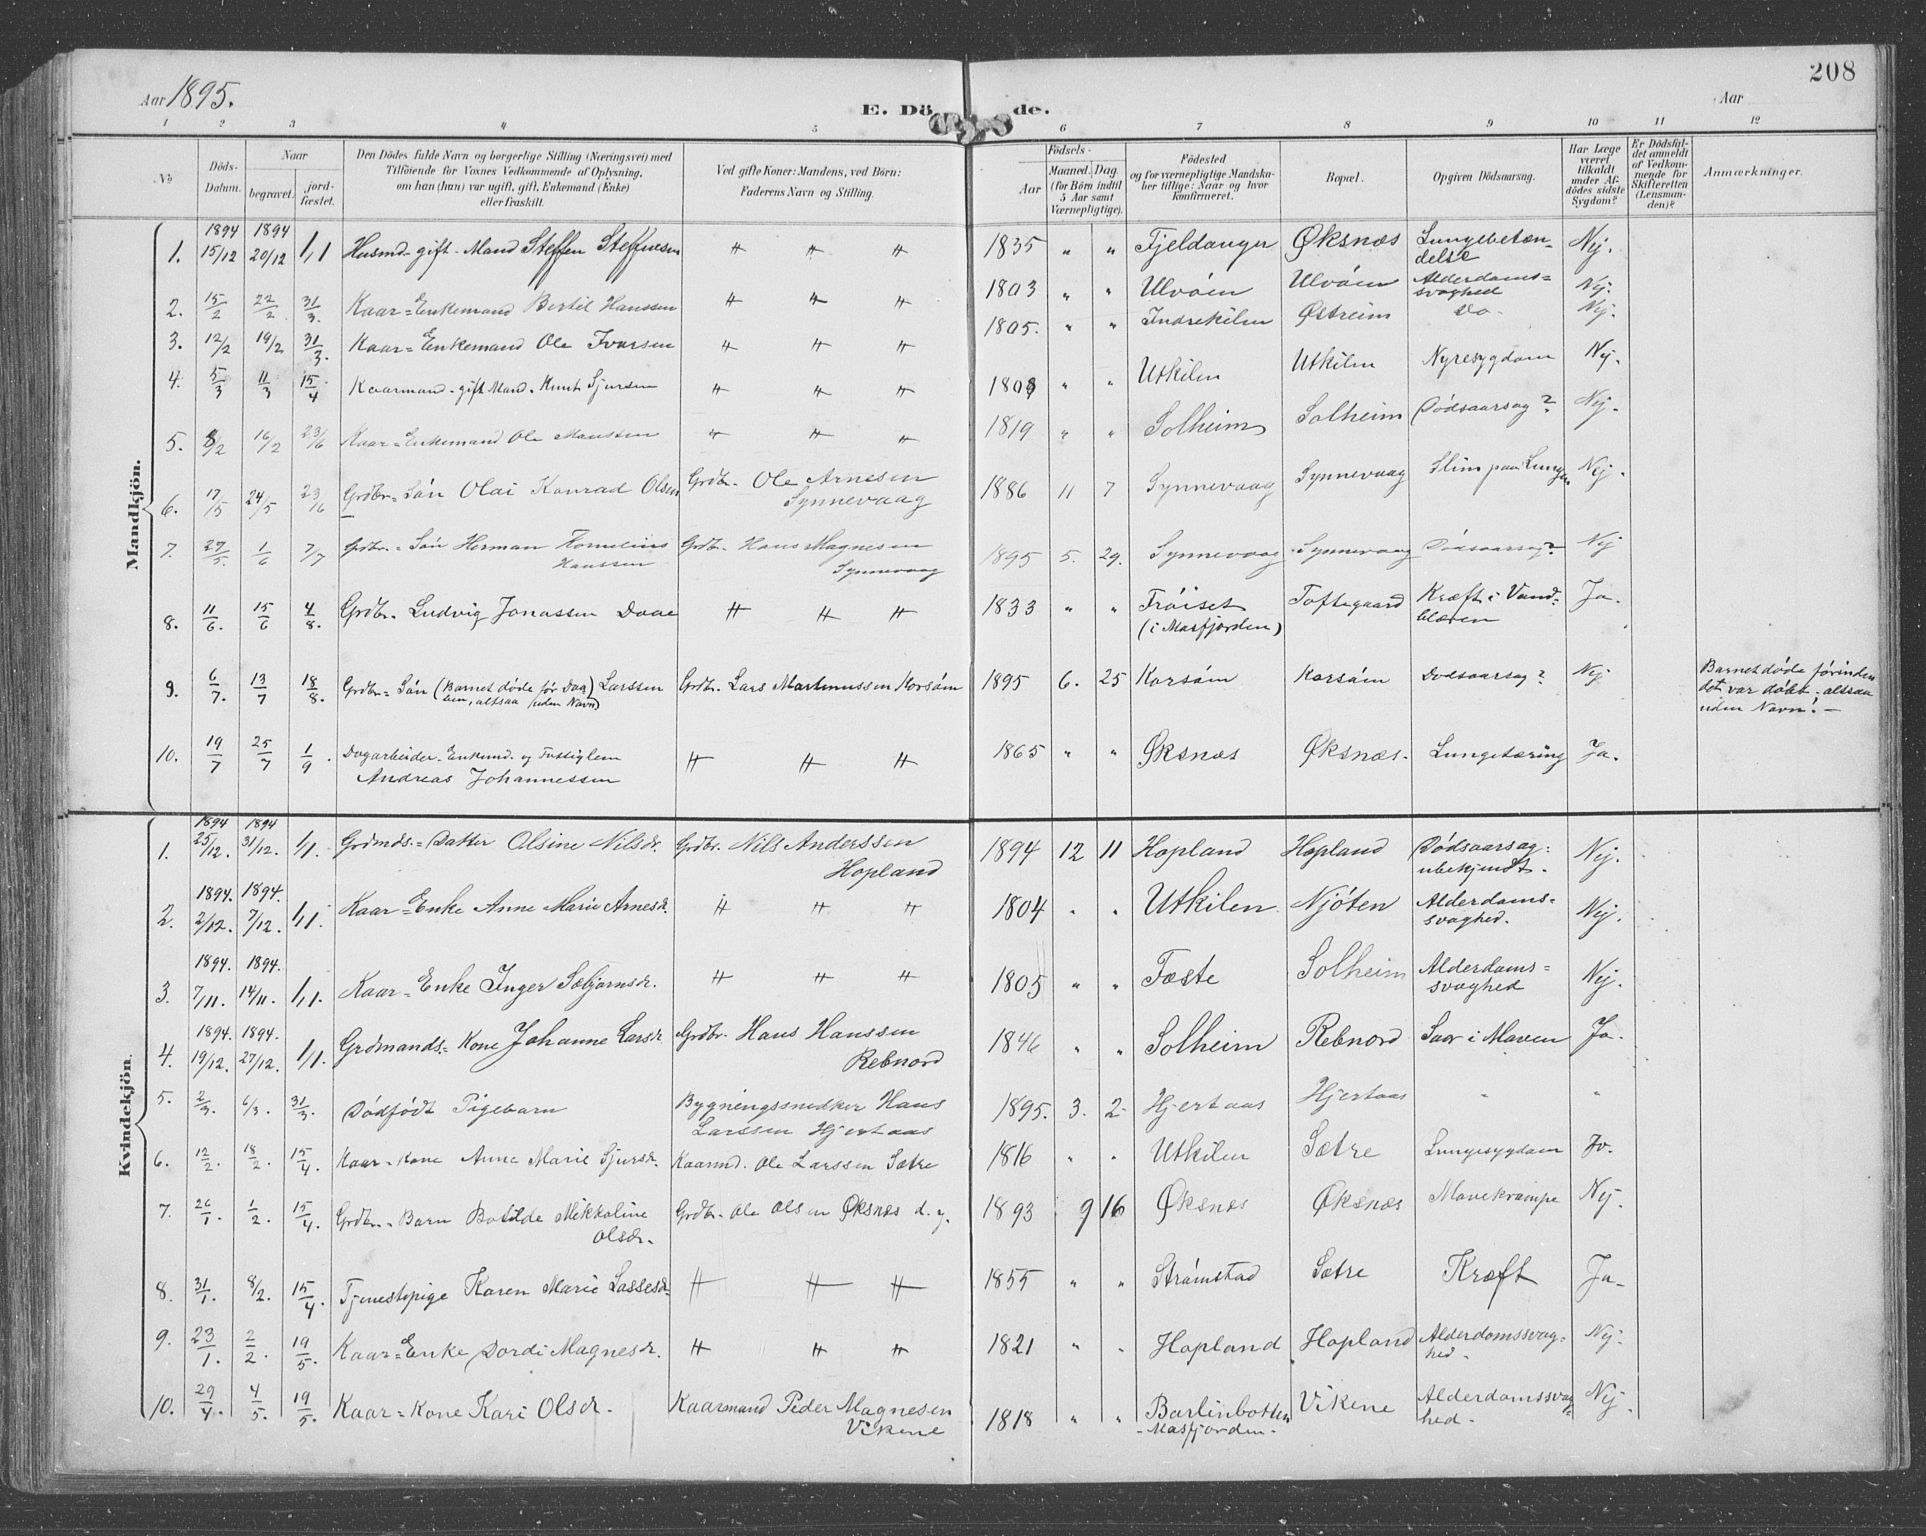 Aar 1895.
E. Döde.
Aar
208
1 2 3 4 5 6 7 8 9 10 11 12
No
Döds-Datum.
Naar
begravet.
jordfæstet.
Den Dödes fulde Navn og borgerlige Stilling (Næringsvei) med
Tilföiende for Voxnes Vedkommende af Oplysning,
om han (hun) var ugift, gift, Enkemand (Enke)
eller fraskilt.
Ved gifte Koner: Mandens, ved Börn:
Faderens Navn og Stilling.
Födsels-
Aar
Maaned. Dag.
(for Börn indtil
5 Aar samt
Værnepligtige).
Födested
og for værnepligtige Mandskaber tillige: Naar og hvor
konfirmeret.
Bopæl.
Opgiven Dödsaarsag.
Har Læge
været
tilkaldt
under Afdödes sidste
Sygdom?
Er Dödsfaldet anmeldt
af Vedkommende for
Skifteretten
(Lensmanden)?
Anmærkninger.
Mandkjön.
1. 1894 15/12 1894 20/12 1/1 Husmd. gift. Mand Steffen Steffensen " " " 1835 " " Fjeldanger Øksnæs Lungebetændelse Nej.
2. 15/2 22/2 31/3. Kaar=Enkemand Bertil Hanssen " " " 1803 " " Ulvöen Ulvöen Alderdoms=svaghed Nej.
3. 12/2 19/2 31/3. Kaar=Enkemand Ole Ivarsen " " " 1805. " " Indrekilen Østreim Do. Nej.
4. 5/3 11/3 15/4 Kaarmand. gift Mand. Knut Sjursen " " " 1808 " " Utkilen Utkilen Nyresygdom Nej.
5. 8/2 16/2 23/6 Kaar=Enkemand Ole Monssen " " " 1819 " " Solheim Solheim Dödsaarsag? Nej.
6. 17/5 24/5 23/6 Grdbr.=Sön Olai Konrad Olsen Grdbr. Ole Arnesen
Synnevaag 1886 11 7 Synnevaag Synnevaag Slim paa Lungen Nej.
7. 29/5. 1/6 7/7 Grdbr.=Sön Herman Kornelius
Hanssen Grdbr. Hans Magnesen
Synnevaag 1895 5. 29. Synnevaag Synnevaag Dödsaarsag? Nej
8. 11/6. 15/6 4/8. Grdbr. Ludvig Jonassen Daae " " " 1833 " " Fröiset
(i Masfjorden) Toftegaard Kræft i Vand-
blæren Ja.
9. 6/7. 13/7 18/8. Grdbr=Sön (Barnet döde för Daa-
ben, altsaa uden Navn) Larssen Grdbr. Lars Martinussen Korsöen 1895 6. 25 Korsöen Korsöen Dödsaarsag? Nej Barnet döde förinden
det var döbt; altsaa
uden Navn! —
10. 19/7 25/7 1/9. Dagarbeider. Enkemd. og Fattiglem
Andreas Johannessen " " " 1865 " " Øksnæs Øksnæs. Lungetæring Ja.
Kvindekjön.
1. 1894 25/12. 1894 31/12. 1/1. Grdmds.=Datter Olsine Nilsdr. Grdbr. Nils Anderssen
Hopland 1894 12 11 Hopland Hopland Dödsaarsag:
ubekjendt. Nej.
2. 1894. 2/12. 1894. 7/12. 1/1. Kaar=Enke Anne Marie Arnesdr. " " " 1804 " " Utkilen Njöten Alderdoms=
svaghed. Nej.
3. 1894. 7/11. 1894. 14/11. 1/1. Kaar=Enke Inger Sæbjörnsdr. " " " 1805 " " Fæste Solheim Alderdoms=
svaghed Nej.
4. 1894. 19/12. 1894. 27/12. 1/1. Grdmands.=Kone Johanne Larsdr. Grdbr. Hans Hanssen
Rebnord 1846 " " Solheim Rebnord Saar i Maven Ja.
5. 2/3. 6/3. 31/3. Dödfödt Pigebarn Bygningssnedker Hans
Larssen Hjertaas 1895. 3. 2. Hjertaas Hjertaas " "
6. 12/2. 18/2. 15/4. Kaar-Kone Anna Marie Sjursdr. Kaarmd. Ole Larssen Sætre 1816 " " Utkilen Sætre Lungesygdom Ja.
7. 26/1 1/2. 15/4. Grdbr.=Barn Botilde Mikkaline
Olsdr. Grdbr. Ole Olsen Øksnæs d. y. 1893 9 16 Øksnæs Øksnæs Mavekrampe Nej.
8. 31/1. 8/2. 15/4. Tjenestepige Karen Marie Lassesdr " " " 1855 " " Strömstad Sætre Kræft Ja-
9. 23/1. 2/2. 19/5. Kaar=Enke Dordi Magnesdr. " " " 1821 " " Hopland Hopland Alderdomssvag=
hed. Nej.
10. 29/4. 4/5. 19/5. Kaar=Kone Kari Olsdr. Kaarmand Peder Magnesen
Vikene 1818 " " Barlinbotten
-Masfjorden- Vikene Alderdomssvag=
hed. Nej.